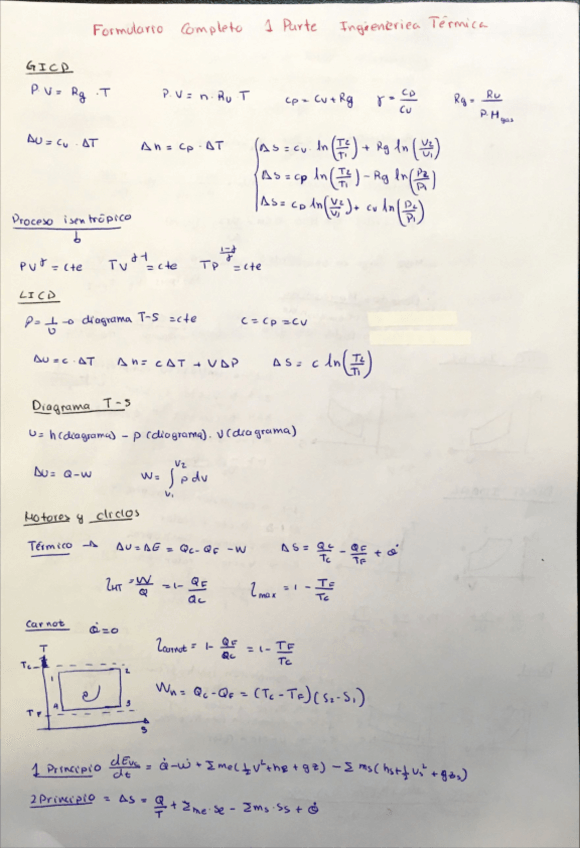 Formulario Completo 1 Parte Ingieneriea Térmica
GICP
P.V = Rg · T   P.V = n · Ru T   cp = cv + Rg   γ = cp/cv   Rg = Ru/P.Mgas
ΔU = cv · ΔT   Δh = cp · ΔT   Δs = cv · ln(T2/T1) + Rg ln(V2/V1)
Δs = cp ln(T2/T1) − Rg ln(P2/P1)
Δs = cp ln(V2/V1) + cv ln(P2/P1)
Proceso isentrópico
PV^γ = cte   TV^(γ-1) = cte   TP^((1-γ)/γ) = cte
LICP
ρ = 1/υ → diagrama T-S = cte   c = cp = cv
ΔU = c · ΔT   Δh = cΔT + VΔP   Δs = c ln(T2/T1)
Diagrama T-s
u = h(diagrama) − p(diagrama). v(diagrama)
ΔU = Q-W   W = ∫ p dv
V2
V1
Motores y ciclos
Térmico → ΔU = ΔE = Qc - QF - W   Δs = Qc/Tc − QF/TF + σ̇
ηMT = W/Q = 1- QF/Qc   ηmax = 1 - TF/Tc
Carnot   σ̇=0
ηcarnot = 1- QF/Qc = 1- TF/Tc
T
Tc
1   2
Wn = Qc - QF = (Tc - TF)(S2 - S1)
4   3
TF
s
1 Principio dEvc/dt = Q̇ - Ẇ + Σ me(½v² + he + gz) − Σ ms(hs + ½vs² + gzs)
2 Principio = Δs = Q/T + Σme · se − Σms · ss + σ̇